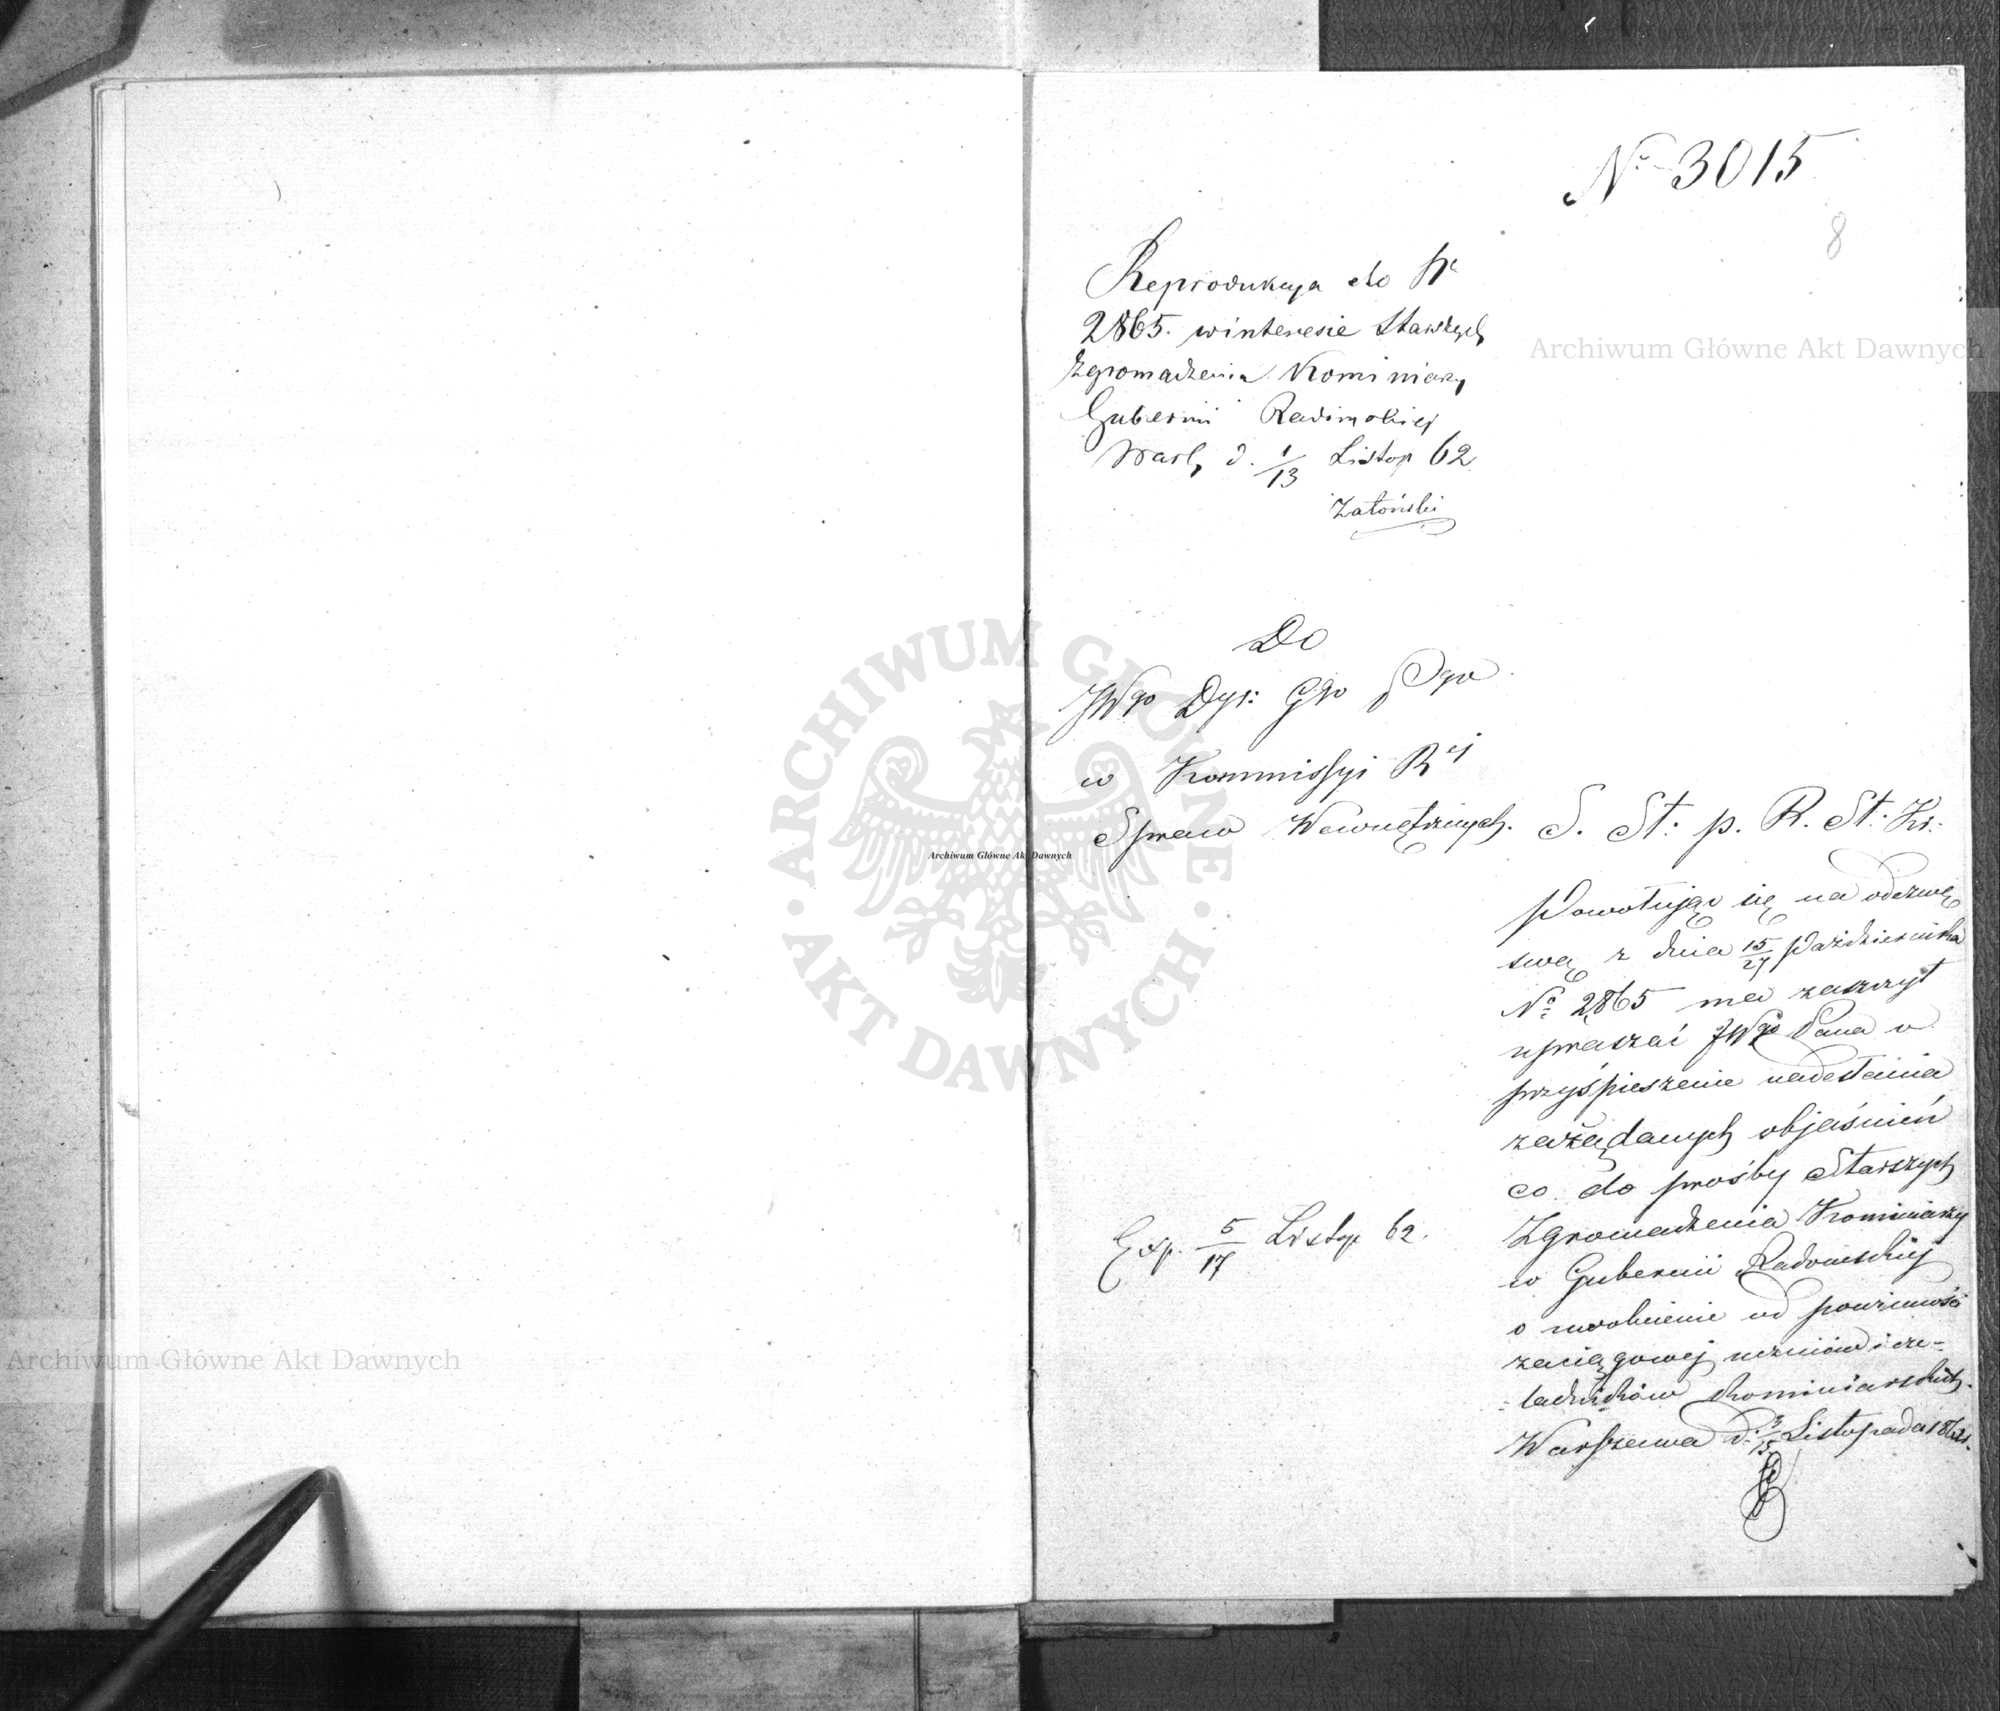 № 3015
8
Reprodukcya do №
2865. w interesie Starszych
Zgromadzenia Kominiarzy
Gubernii Radomskiej
Warsz. d. 1/13 Listop 62
Zatoński
Do
JWgo Dyr: Ggo
w Kommissyi Rej
Spraw Wewnętrznych.
S. St: p. R. St: Kr:
Powołując się na odezwę
swą z dnia 15/27 Października
№ 2865 ma zaszczyt
upraszać JWgo Pana o
przyśpieszenie nadesłania
zażądanych objaśnień
co do prośby Starszych
Zgromadzenia Kominiarzy
w Gubernii Radomskiej
o uwolnienie od powinności
zaciągowej uczniów i cze=
=ladników kominiarskich.
Warszawa d. 3/15 Listopada 1862 r.
Exp. 5/17 Listop 62.
Archiwum Główne Akt Dawnych
Archiwum Główne Akt Dawnych
Archiwum Główne Akt Dawnych
ARCHIWUM GŁÓWNE
AKT DAWNYCH